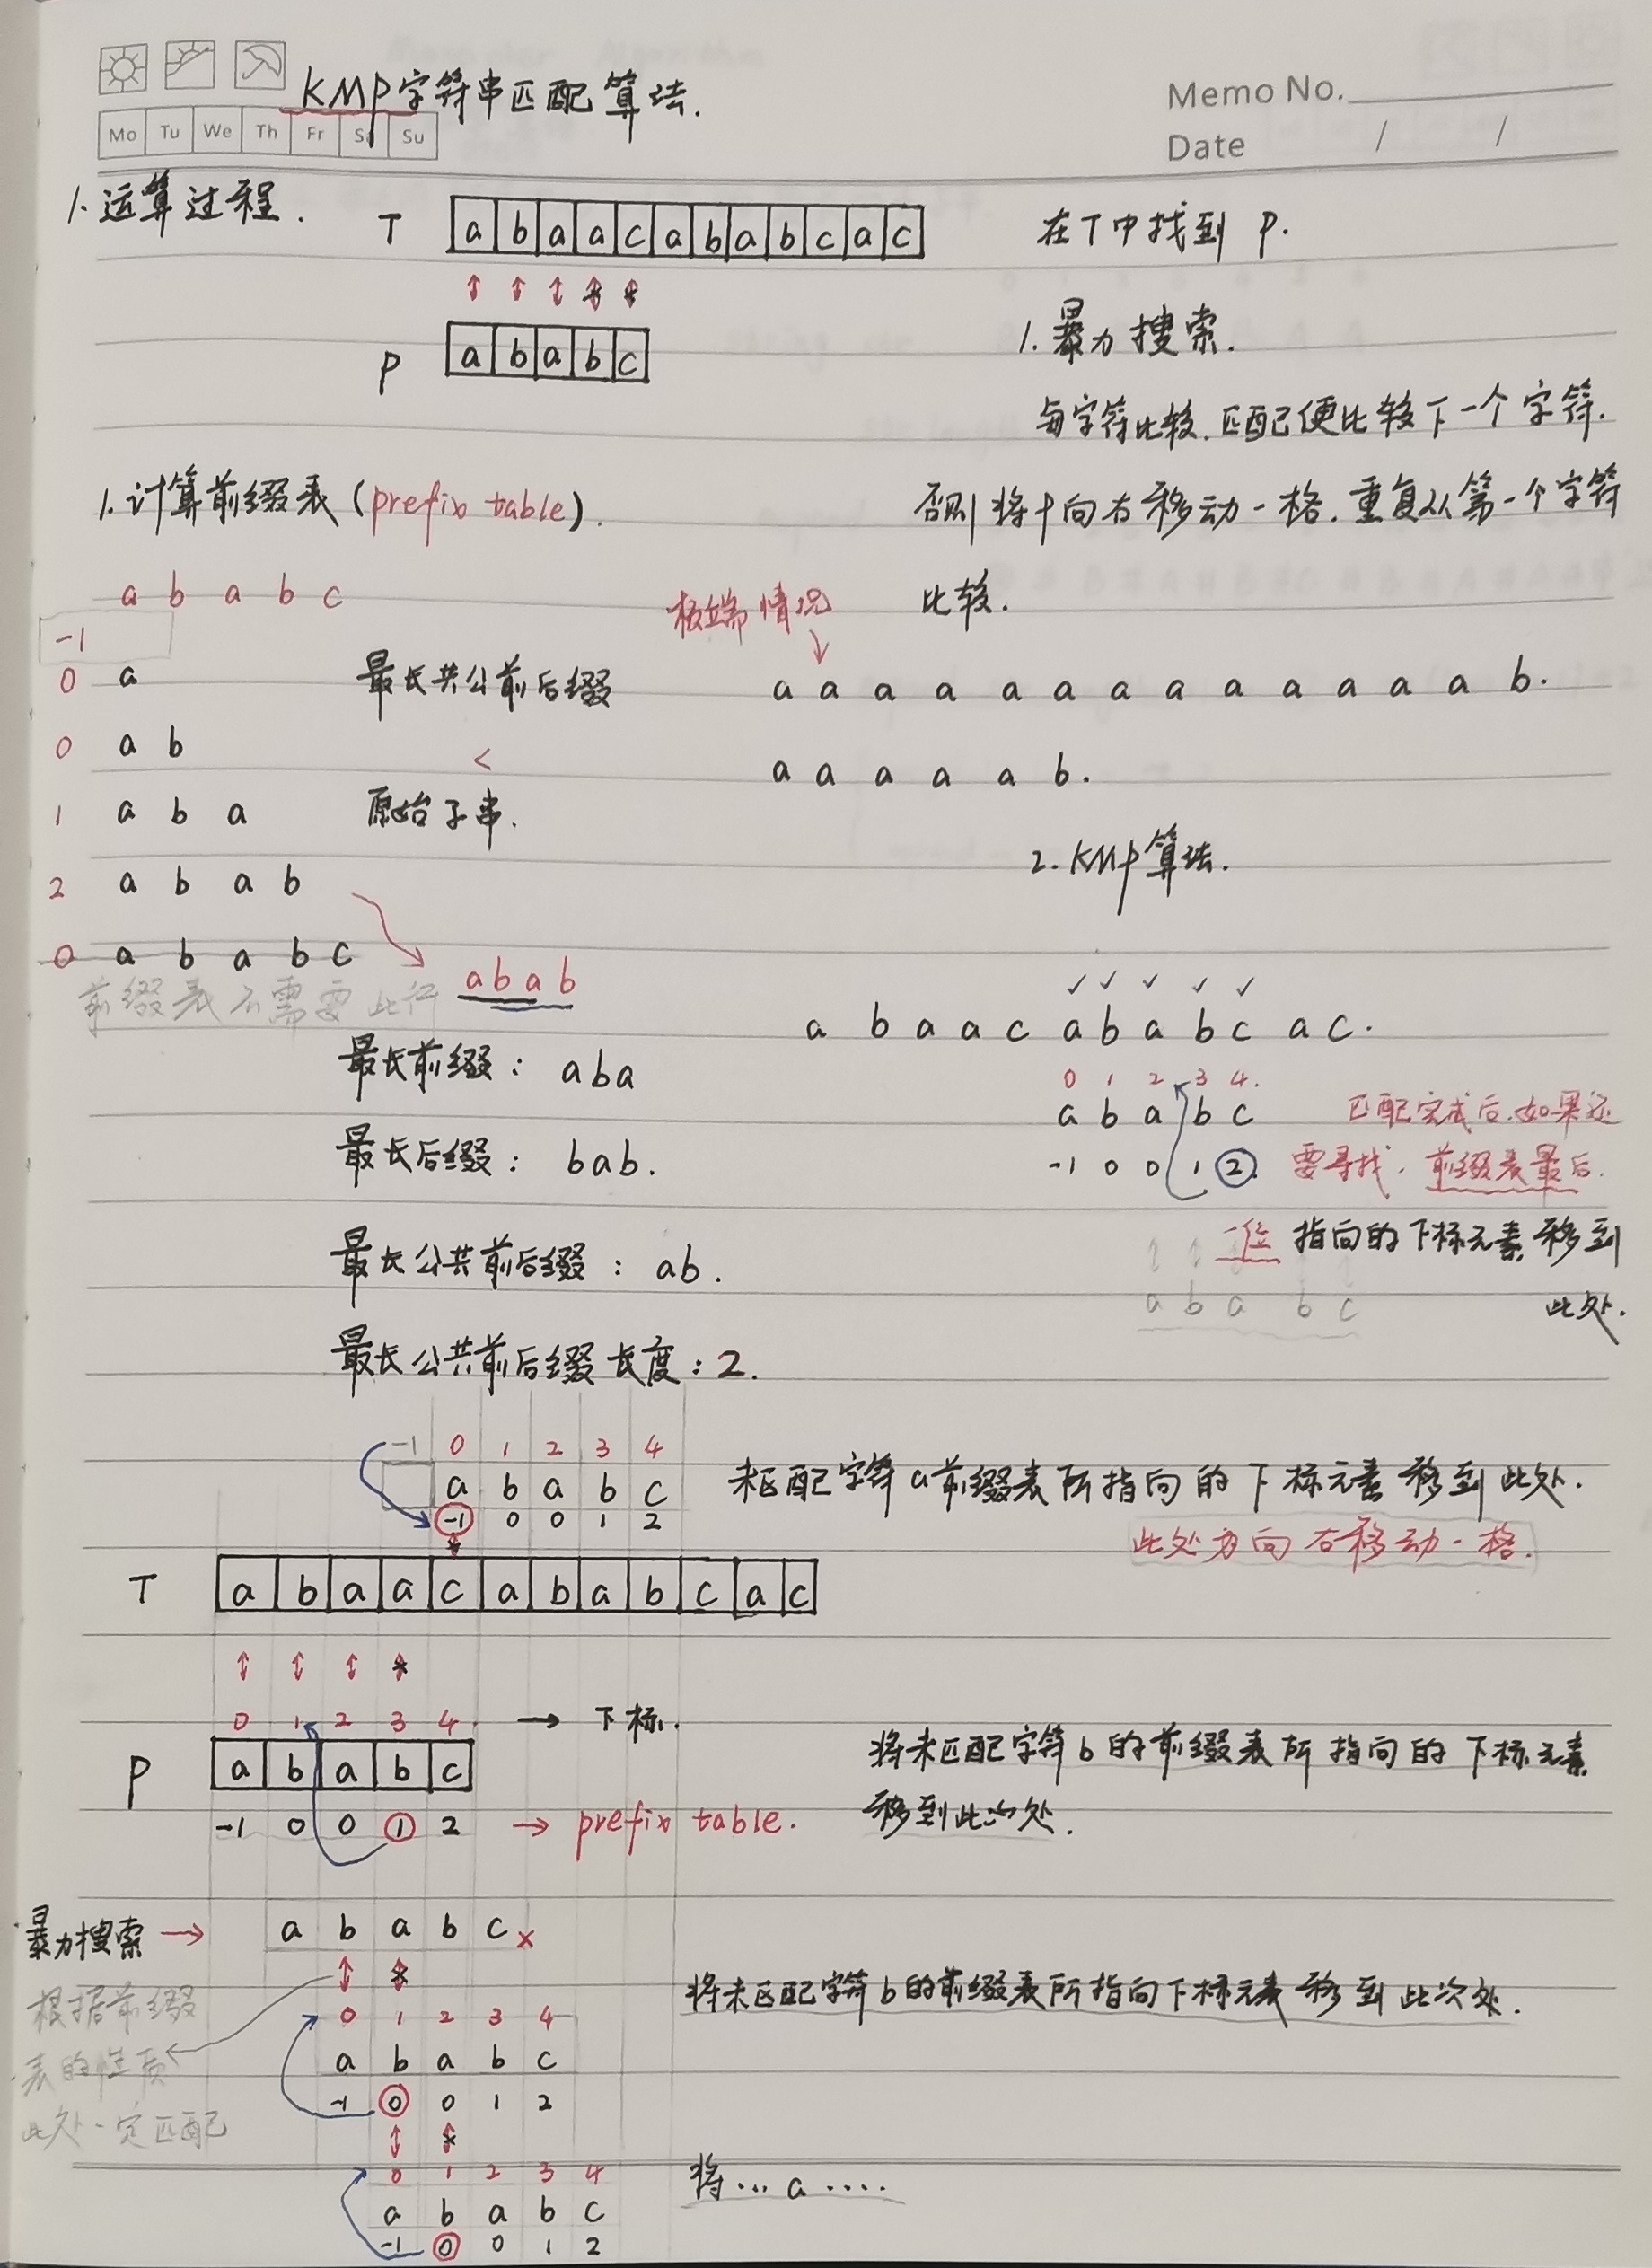 KMP字符串匹配算法.
Memo No.
Mo Tu We Th Fr Sa Su
Date / /
1. 运算过程.
T a b a a c a b a b c a c
在T中找到 P.
P a b a b c
1. 暴力搜索.
每字符比较. 匹配便比较下一个字符.
否则将P向右移动一格. 重复从第一个字符
比较.
极端情况
a a a a a a a a a a a a a b.
a a a a a b.
1. 计算前缀表 (prefix table).
a b a b c
-1
0 a
最长共公前后缀
0 a b
<
1 a b a
原始子串.
2 a b a b
0 a b a b c
前缀表不需要此行
a b a b
最长前缀: aba
最长后缀: bab.
最长公共前后缀: ab.
最长公共前后缀长度: 2.
2. KMP算法.
✓ ✓ ✓ ✓ ✓
a b a a c a b a b c a c.
0 1 2 3 4.
a b a b c
-1 0 0 1 2
匹配完成后,如果还
要寻找, 前缀表最后
一位 指向的下标元素移到
此处.
a b a b c
-1 0 1 2 3 4
a b a b c
-1 0 0 1 2
未匹配字符a前缀表所指向的下标元素移到此处.
此处为向右移动一格.
T a b a a c a b a b c a c
0 1 2 3 4 → 下标.
P a b a b c
-1 0 0 1 2 → prefix table.
将未匹配字符b的前缀表所指向的下标元素
移到此次处.
暴力搜索 → a b a b c ×
根据前缀
表的性质
此处一定匹配
0 1 2 3 4
a b a b c
-1 0 0 1 2
将未匹配字符b的前缀表所指向下标元素移到此次处.
0 1 2 3 4
a b a b c
-1 0 0 1 2
将...a....